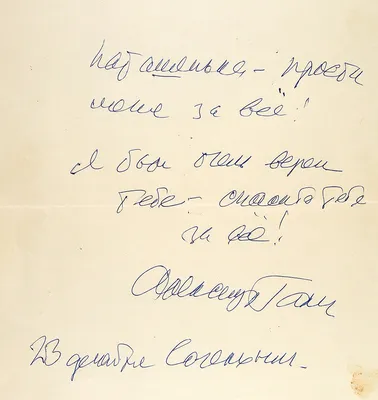 Наташенька – прости
меня за всё!
Я был очень верен
тебе – спасибо тебе
за всё!
Александр Галич
23 декабря